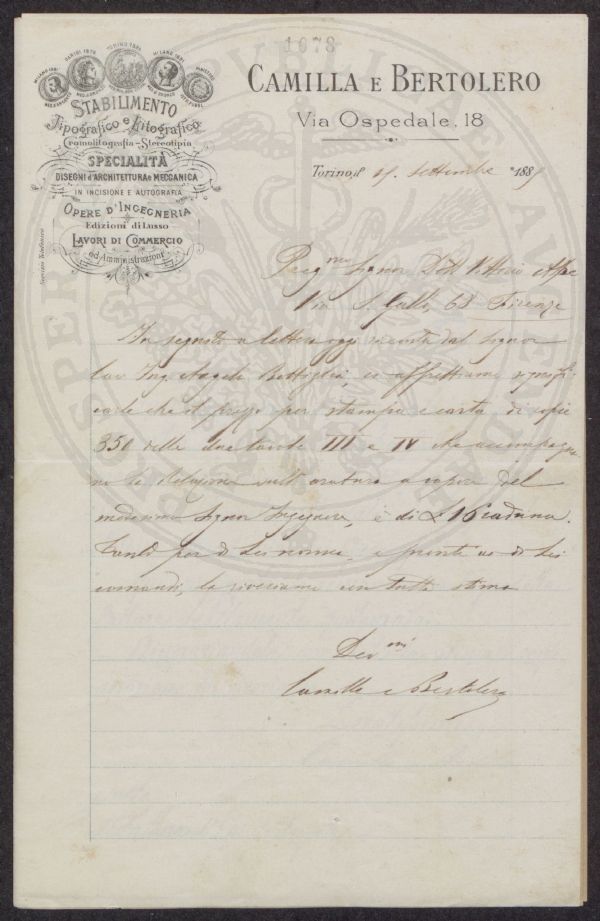 1073
MILANO 1881
PARIGI 1878
TORINO 1884
MILANO 1881
STABILIMENTO
Tipografico e Litografico
Cromolitografia-Stereotipia
SPECIALITÀ
DISEGNI d'ARCHITETTURA e MECCANICA
IN INCISIONE E AUTOGRAFIA
OPERE D'INGEGNERIA
Edizioni di Lusso
LAVORI DI COMMERCIO
ed Amministrazioni
CAMILLA E BERTOLERO
Via Ospedale, 18
Torino, settembre 188
Preg Signor Dott Vittorio
Via S. Gallo, 68 Firenze
In seguito a lettera oggi ricevuta dal Signor
Cav Ing. Angelo Bottiglia, ci affrettiamo signifi
carle che il prezzo per stampa e carta di copie
350 delle due tavole III e IV che accompagna
no la Relazione sull'aratura a vapore del
medesimo Signor Ingegnere, è di £ 16 caduna.
Tanto per di Lei norma e pronti ai di Lei
comandi, la riveriamo con tutta stima
Dev mi
Camilla e Bertolero